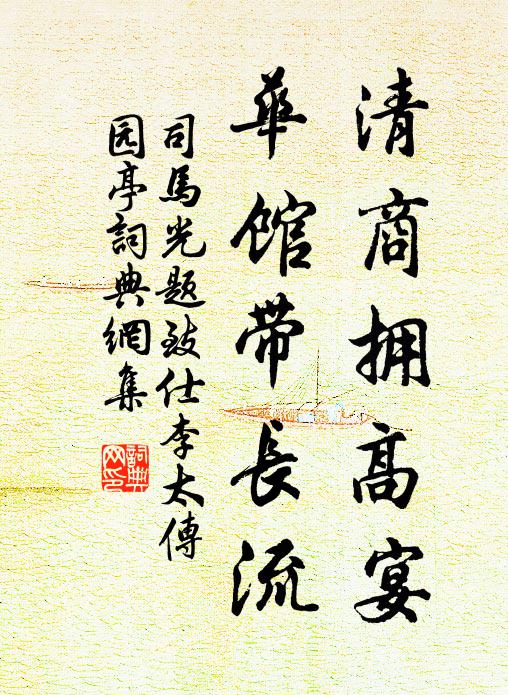 清商拥高宴
華館带長流
司馬光题致仕李太傅
园亭詞典網集
詞典網印